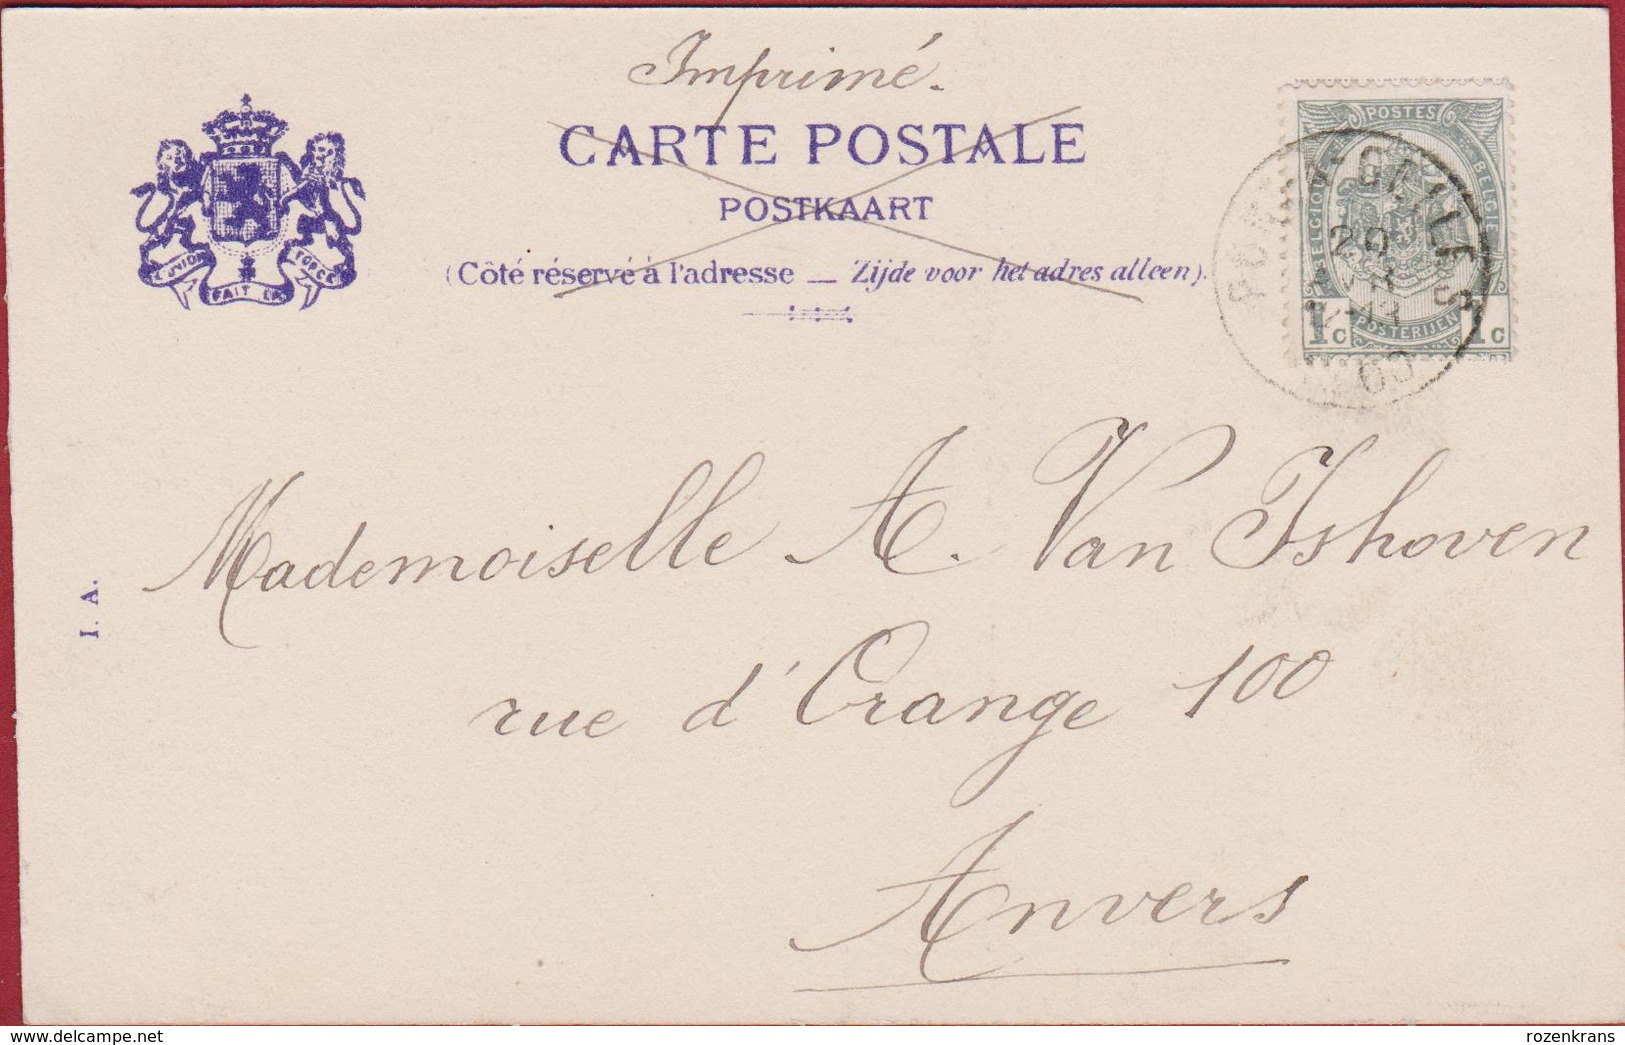 Imprimé.
CARTE POSTALE
POSTKAART
(Côté réservé à l'adresse — Zijde voor het adres alleen).
L'UNION FAIT LA FORCE
POSTES
BELGIQUE BELGIË
1c POSTERIJEN 1c
29
03
I. A.
Mademoiselle A. Van Ishoven
rue d'Orange 100
Anvers
rozenkrans
www.delcampe.net